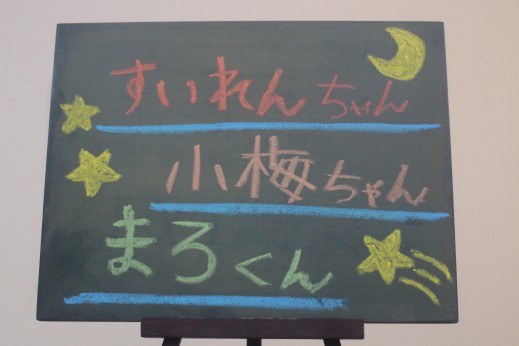 すいれんちゃん
小梅ちゃん
まろくん